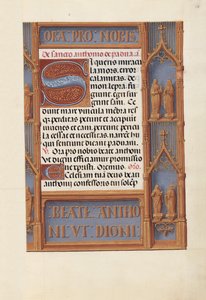 ORA PRO NOBIS
De sancto anthonio de padua. a
Si queris miracula
mors, error
calamitas, de
mon lepra fu
giunt egri sur
gunt sani. Ce
dunt mare vincula membra re
sqz perditas petunt et accipiunt
iuvenes et cani. pereunt pericu
la cessat et necessitas. narrent hi
qui sentiunt dicant paduani.
Ora pro nobis beate anthoni
Ut digni efficiamur promissione
Oremus.
Ecclesiam tua deus beati
anthonij confessoris tui solep
BEATE ANTHO
NI UT DIGNI